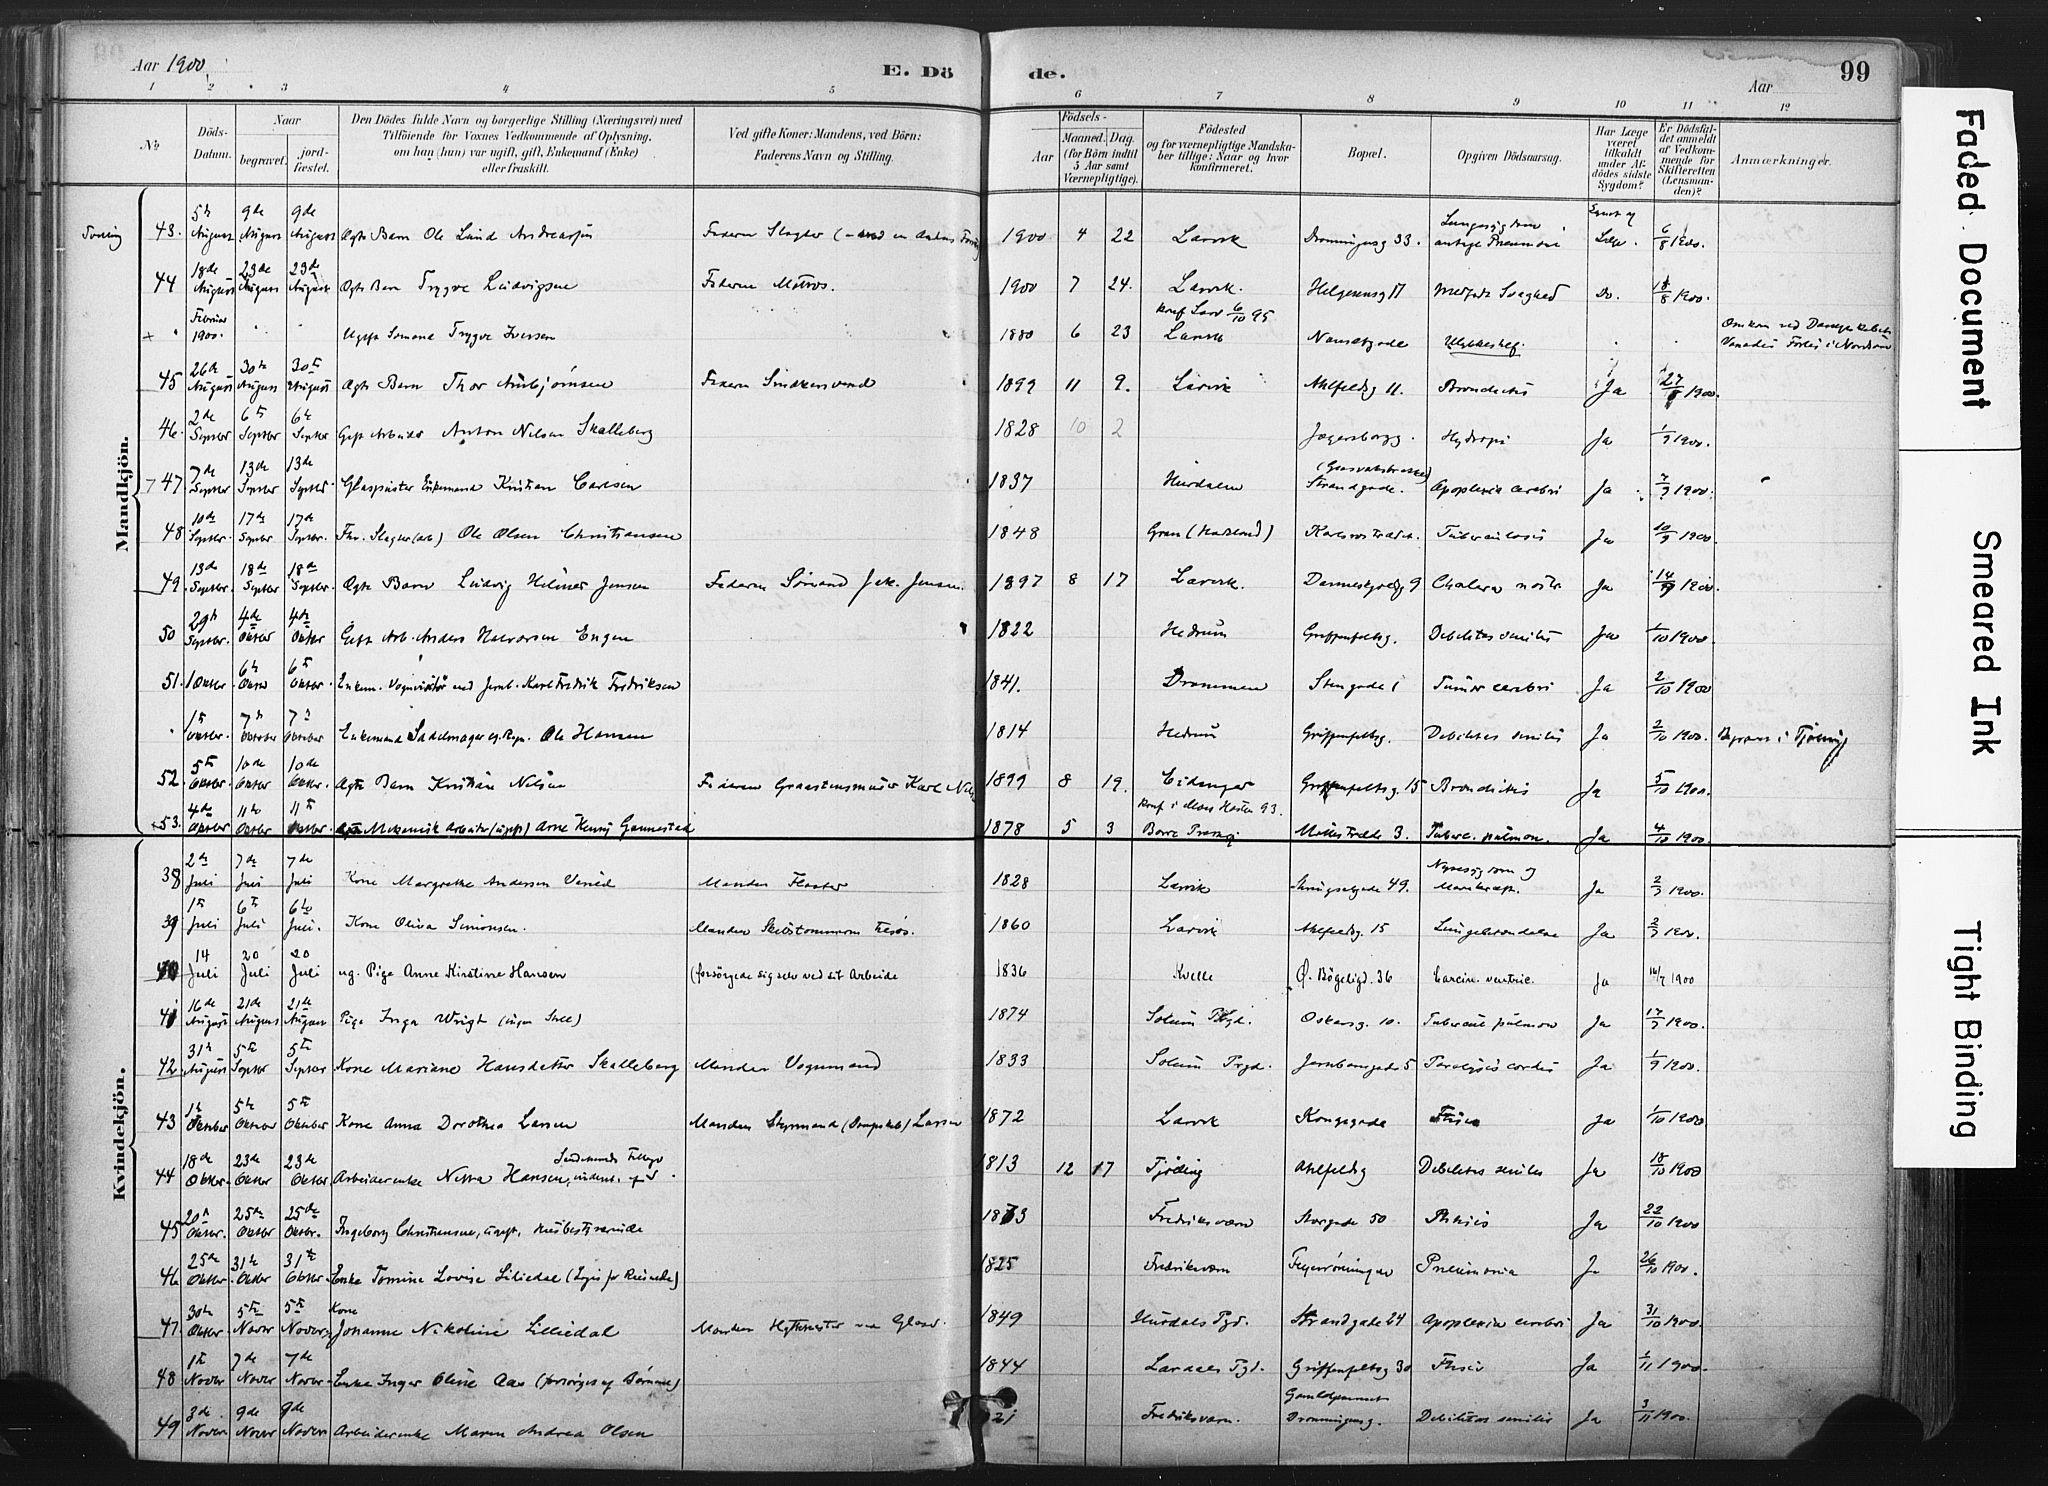 Aar 1900. E. Dö de. Aar 99
1 2 3 4 5 6 7 8 9 10 11 12
No
Döds-Datum.
Naar
begravet.
jord-fæstet.
Den Dödes fulde Navn og borgerlige Stilling (Næringsvei) med
Tilföiende for Voxnes Vedkommende af Oplysning,
om han (hun) var ugift, gift, Enkemand (Enke)
eller fraskilt.
Ved gifte Koner: Mandens, ved Börn:
Faderens Navn og Stilling.
Födsels-
Aar
Maaned. Dag.
(for Börn indtil
5 Aar samt
Værnepligtige).
Födested
og for værnepligtige Mandska-
ber tillige: Naar og hvor
konfirmeret.
Bopæl.
Opgiven Dödsaarsag.
Har Læge
været
tilkaldt
under Af-
dödes sidste
Sygdom?
Er Dödsfal-
det anmeldt
af Vedkom-
mende for
Skifteretten
(Lensman-
den)?
Anmærkninger.
Mandkjön.
Tvilling 43. 5te August 9de August 9de August Ægte Barn Ole Lund Andreassen Faderen Slagter 1900 4 22 Larvik Dronningensg 33. Læge. 6/8 1900.
44 18de August 23de August 23de August Ægte Barn Trygve Ludvigsen Faderen Matros. 1900 7 24. Larvik. Helgesensg 17 Medfødt Svaghed Do. 18/8 1900.
Februar 1900. Ugift Sømand Trygve Iversen 1880 6 23 konf Larv 6/10 95 Larvik Nansetgade Ulykkestilf.
45 26de August 30te August 30te August Ægte Barn Thor Aubjørnsen Faderen Smedesvend 1899 11 9. Larvik Ahlfeldsg 11. Bronchitis Ja 27/8 1900.
46. 2de Septbr 6te Septbr 6te Septbr Gift Arbeider Anton Nilsen Skalleberg 1828 10 2 Jægersborgg. Hydrops Ja 1/9 1900.
47. 7de Septbr 13de Septbr 13de Septbr Glaspuster Enkemand Kristian Carlsen 1837 Hurdalen Strandgade. Apoplexia cerebri Ja 7/9 1900.
48 10de Septbr. 17de Septbr 17de Septbr. Fhv. Slagter (arb) Ole Olsen Christiansen 1848 Gran (Hadeland) Tuberculosis Ja 10/9 1900.
49. 13de Septbr. 18de Septbr 18de Septbr. Ægte Barn Ludvig Helmer Jensen Faderen Sømand Jak. Jensen. 1897 8 17 Larvik. Danneskjoldg 9 Cholera nostr Ja 14/9 1900.
50 29de Septbr. 4de Oktbr 4de Oktbr Gift Arb. Anders Halvorsen Engen 1822 Hedrum Griffenfeldsg. Debilitas senilis Ja 1/10 1900.
51. 1 Oktbr. 6te Oktbr 6te Oktbr. Enkem. Vognvisitør ved Jernb. Karl Fredrik Fredriksen 1841. Drammen Stengade 1 Tumor cerebri Ja 2/10 1900
1te Oktbr. 7de Oktober 7de Oktober Enkemand Sadelmager Ole Hansen 1814 Hedrum Griffenfeldsg. Debilitas senilis Ja 2/10 1900. Begraves i Tjølling
52. 5te Oktbr. 10de Oktbr 10de Oktbr. Ægte Barn Kristian Nilsen Faderen Graastensmurer Karl Nilsen 1899 8 19. Eidanger Griffenfeldsg. 15 Bronchitis Ja 5/10 1900.
53. 4de Oktbr 11te Oktbr 11te Oktbr. Mekanisk Arbeider (ugift) Arne Henry Gannestad 1878 5 3 Borre Prestegj Møllestrædе 3. Tuberc. pulmon. Ja 4/10 1900
Kvindekjön.
38 2de Juli 7de Juli 7de Juli Kone Margrethe Andersen Manden 1828 Larvik Kongegade 49. Nyresygdom og Ja 2/7 1900.
39 1te Juli 6te Juli 6te Juli. Kone Oliva Simonsen. Manden Skibstømmerm 1860 Larvik Ahlfeldsg. 15 Lungebetændelse Ja 2/7 1900.
40 14 Juli 20 Juli 20 Juli ug. Pige Anne Kirstine Hansen (forsørgede sig selv ved sit Arbeide 1836 Kvelle Ø. Bøgeligd. 36 Carcin. ventric. Ja 16/7 1900
41 16de August 21de August 21de August Pige Inga Wrigt 1874 Solum Pgd. Oskarsg. 10. Tubercul pulmon Ja 17/7 1900.
42. 31te August 5te Septbr 5te Septbr Kone Mariane Hansdatter Skalleberg Manden Vognmand 1833 Solum Prgd. Jernbanegade 5 Paralysis cordis Ja 1/9 1900.
43 1te Oktober 5te Oktober 5te Oktober Kone Anna Dorothea Larsen Manden Styrmand Larsen 1872 Larvik Kongegade Ftisis Ja 1/10 1900
44 18de Oktbr. 23de Oktbr 23de Oktbr Arbeiderenke Hansen, 1813 12 17 Tjølling Ahlfeldsg Debilitas senilis Ja 18/10 1900
45 20de Oktbr. 25de Oktbr 25de Oktbr. Ingeborg Christensen, ugift, Husbestyrerinde 1873 Fredriksværn Storgade 50 Phtisis Ja 22/10 1900
46 25de Oktbr. 31te Oktbr 31te Oktbr. Enke Tomine Lovise Liliedal 1825 Fredriksværn Pneumonia Ja 26/10 1900.
47 30te Oktbr. 5te Novbr 5te Novbr. Kone Johanne Nikoline Lilliedal Manden Hyttmester ved Glasv. 1849 Hurdals Pgd. Strandgade 24 Apoplexia cerebri Ja 31/10 1900.
48 1te Novbr 7de Novbr 7de Novbr. Enke Inger Oline Aas (forsørges af Børnene) 1844 Lardals Pgd. Griffenfeldsg 30 Ftisis Ja 1/11 1900.
49 3de Novbr 9de Novbr 9de Novbr Arbeiderenke Maren Andrea Olsen 21 Fredriksværn. Dronningensg. Debilitas senilis Ja 3/11 1900.
Faded Document
Smeared Ink
Tight Binding